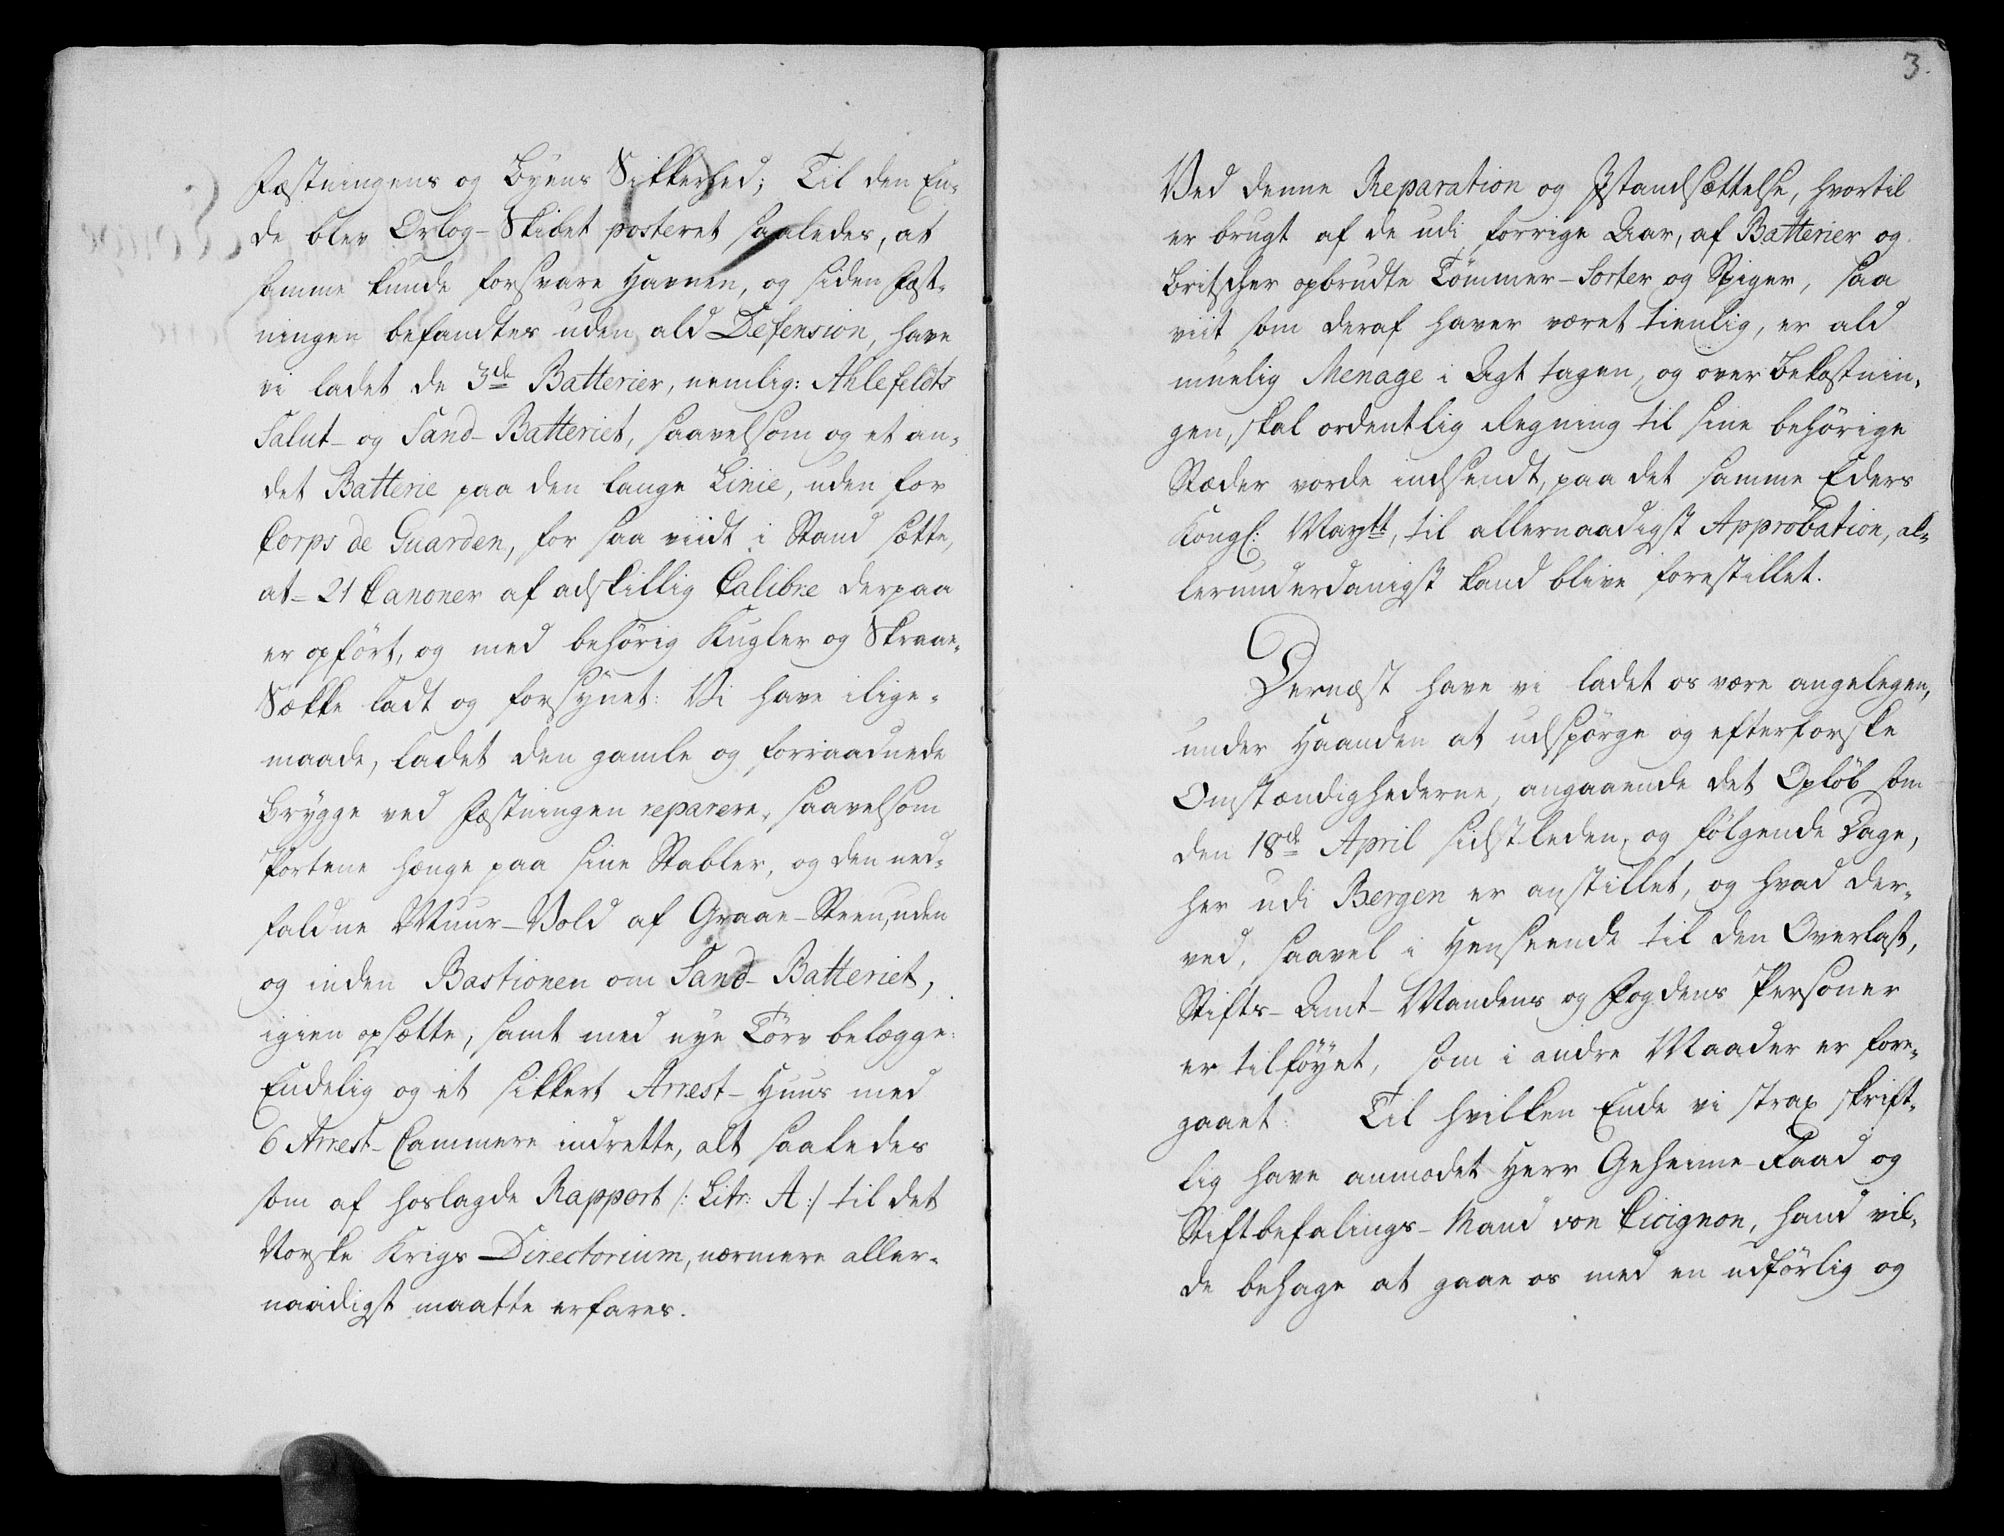 Fæstningens og Byens Sikkerhed; Til den En-
de blev Orlog-Skibet posteret saaledes, at
samme kunde forsvare Havnen, og siden Fæst-
ningen befandtes uden ald Defension, have
vi ladet de 3de Batterier, nemlig: Ahlefeldts
Salut- og Sand-Batteriet, saavelsom og et an-
det Batterie paa den lange Linie, uden for
Corps de Guarden, for saa viidt i Stand sætte,
at- 21 Canoner af adskillig Calibre derpaa
er opført, og med behørig Kugler og Skraae-
Sække ladt og forsynet: Vi have ilige-
maade, ladet den gamle og forraadnede
Brygge ved Fæstningen reparere, saavelsom
Portene hænge paa sine Stabler, og den ned-
faldne Muur-Vold af Graae-Steen, uden
og inden Bastionen om Sand-Batteriet,
igien opsætte, samt med nye Tørv belægge:
Endelig og et sikkert Arrest-Huus med
6 Arrest-Cammere indrette, alt saaledes
som af hoslagde Rapport /: Litr: A :/ til det
Norske Krigs Directorium, nærmere aller-
naadigst maatte erfares.
3.
Ved denne Reparation og Istandsættelse, hvortil
er brugt af de udi forrige Aar, af Batterier og
Britscher opbrudte Tømmer-Sorter og Spiger, saa
viit som deraf haver været tienlig, er ald
muelig Menage i Agt tagen, og over Bekostnin-
gen, skal ordentlig Regning til sine behørige
Stæder vorde indsendt, paa det samme Eders
Kongl: Maytt, til allernaadigst Approbation, al-
lerunderdanigst kand blive forestillet.
Dernæst have vi ladet os være angelegen,
under Haanden at udspørge og efterforske
Omstændighederne, angaaende det Opløb som
den 18de April sidstleden, og følgende Dage,
her udi Bergen er anstillet, og hvad der-
ved, saavel i Henseende til den Overlast,
Stifts-Amt-Mandens og Fogdens Personer
er tilføyet, som i andre Maader er fore-
gaaet: Til hvilken Ende vi strax skrift-
lig have anmodet Herr Geheime-Raad og
Stiftbefalings-Mand von Cicignon, hand vil-
de behage at gaae os med en udførlig og